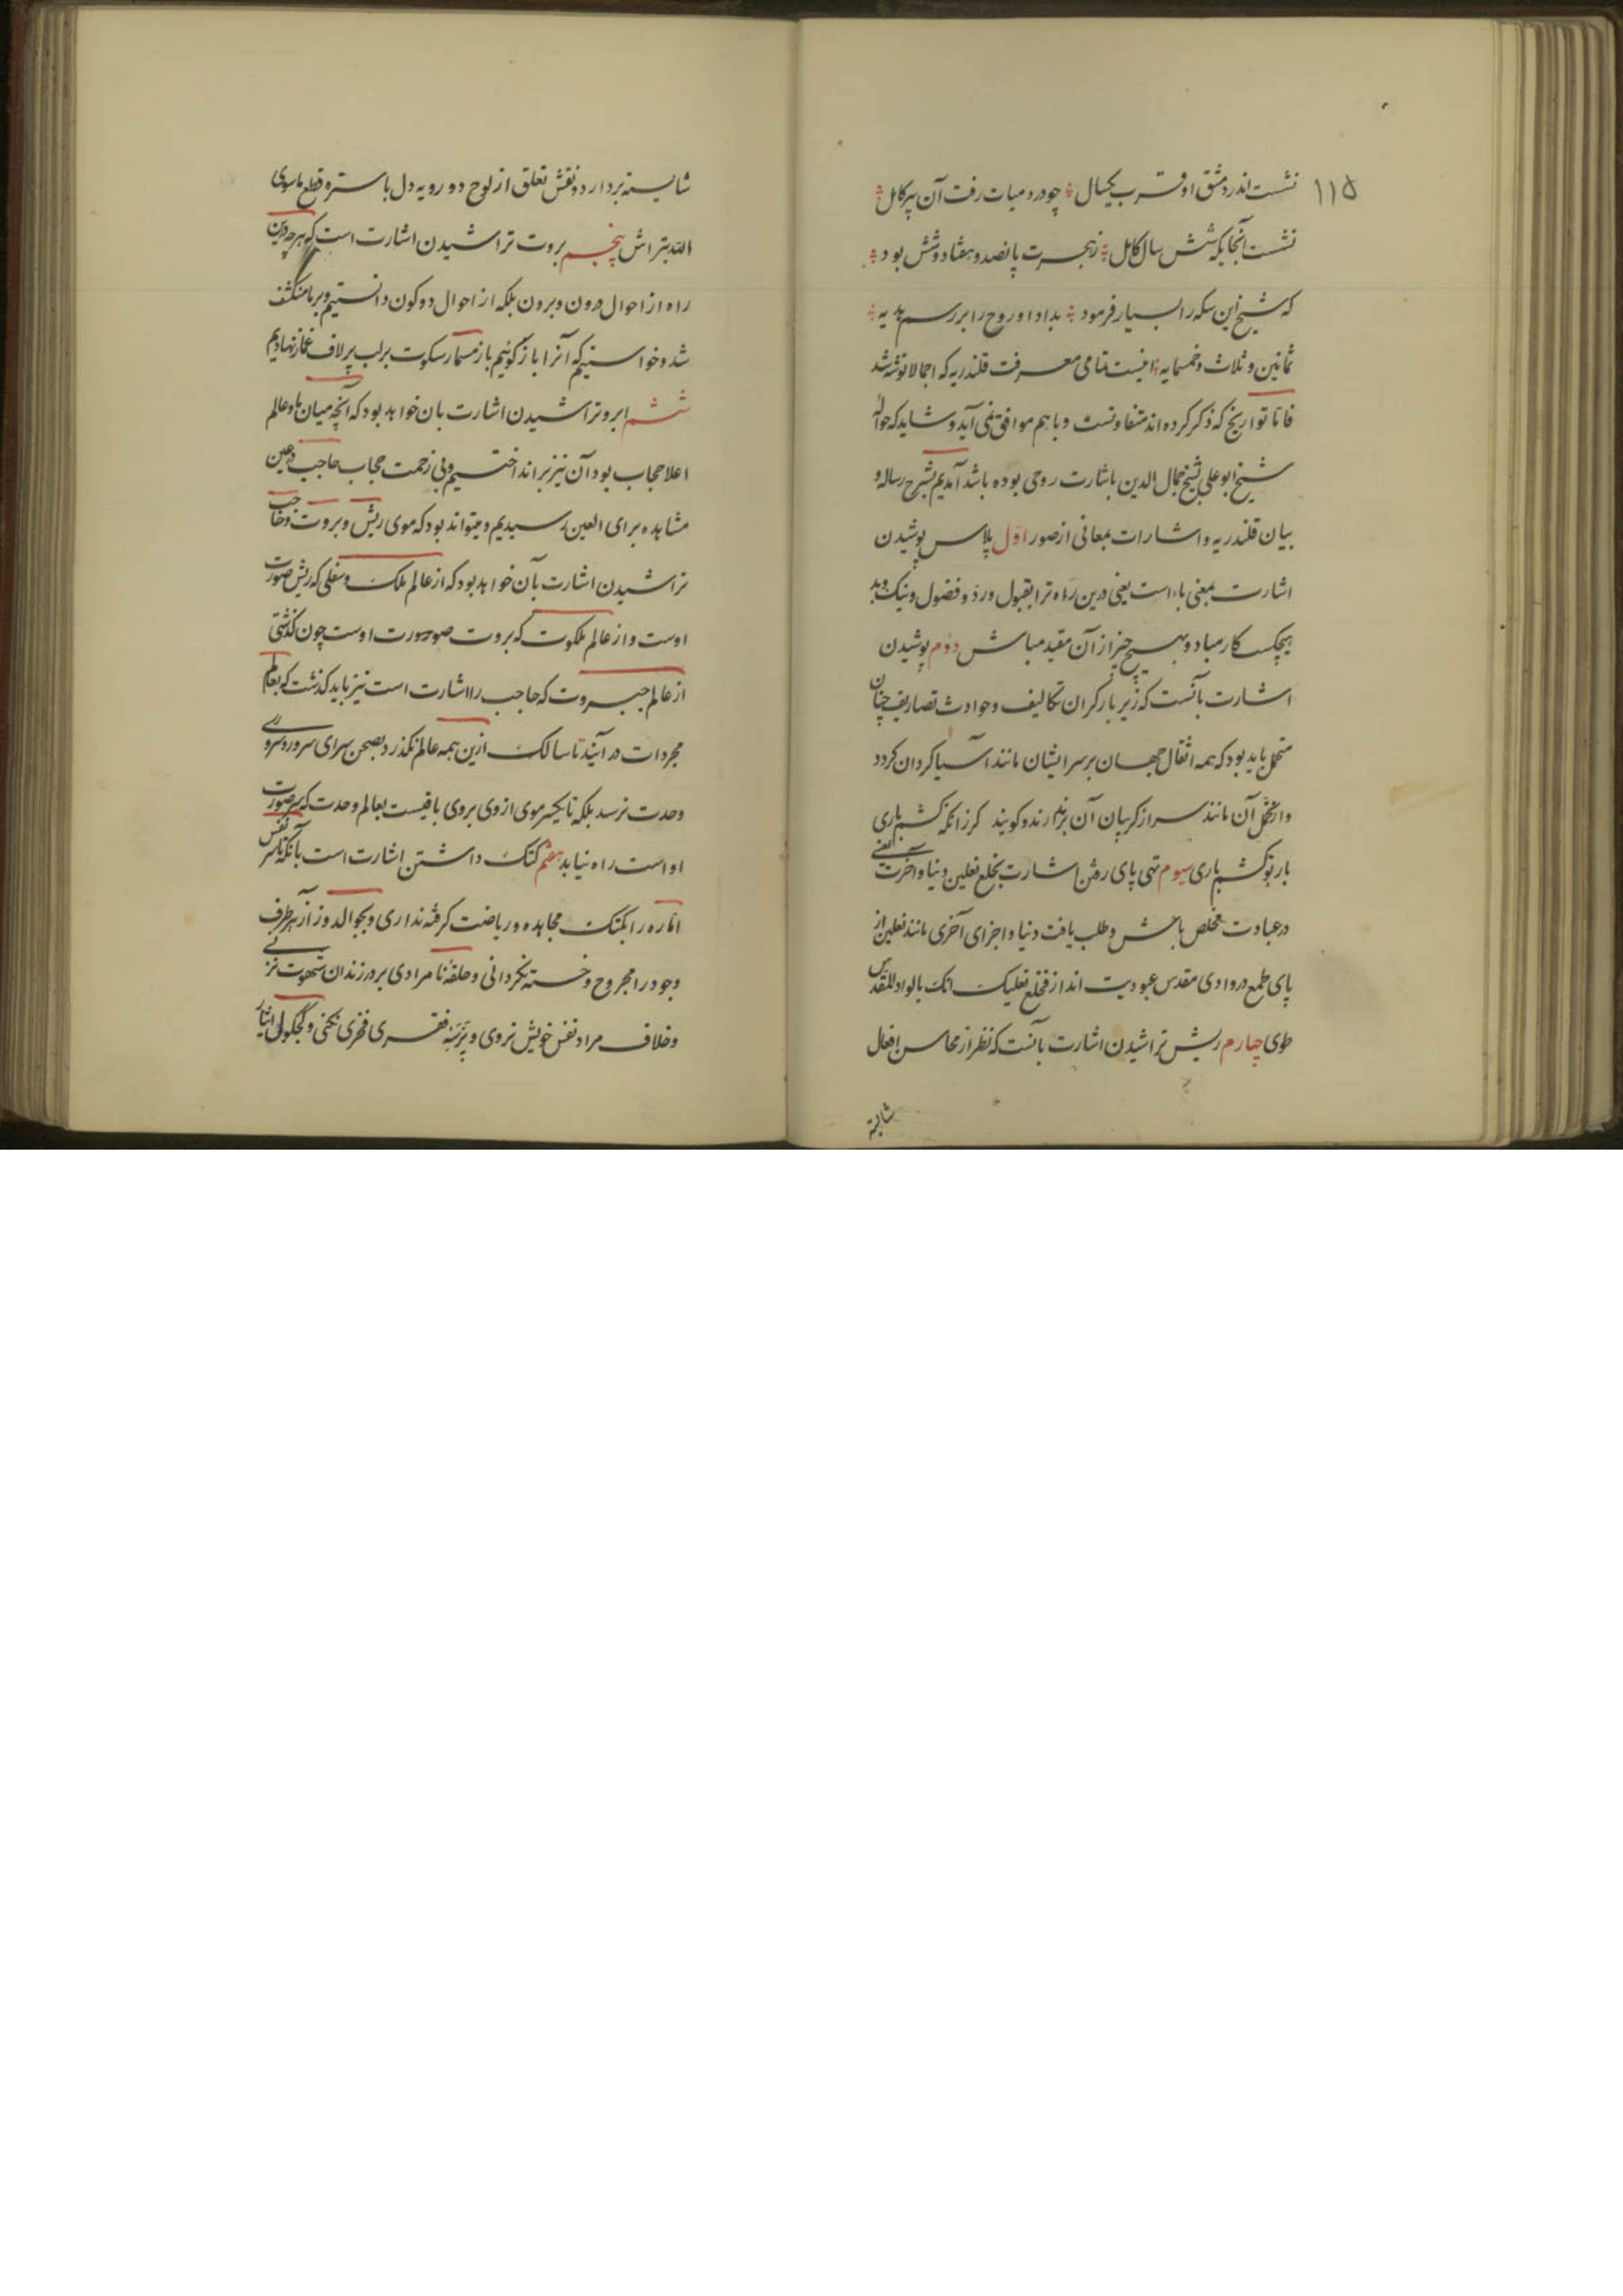 ۱۱۵
نشست اندر دمشق او قرب یکسال چو در دومیات رفت آن پیر کامل
نشست آنجا یکه شش سال کامل زهجرت پانصد و هفتاد و شش بود
که شیخ این سکه را بسیار فرمود بداد او روح را بر رسم هدیه
ثمانین و ثلاث و خمسمایه اینست تمامی معرفت قلندریه که اجمالا نوشته شد
فاما تواریخ که ذکر کرده اند متفاوتست و باهم موافق نمی آید و شاید که حواله
شیخ ابو علی شیخ جمال الدین باشارت روحی بوده باشد آمدیم بشرح رساله و
بیان قلندریه و اشارات بمعانی از صور اول پلاس پوشیدن
اشارت بمعنی است یعنی درین راه ترا بقبول و رد و فضول و نیک و بد
هیچکس کار مباد و بهیچ چیز از آن مقید مباش دوم پوشیدن
اشارت بآنست که زیر بار کران تکالیف و حوادث تصاریف چنان
متحمل باید بود که همه اثقال جهان بر سر ایشان مانند آسیا کردان کردد
و از تحمل آن مانند سر از کریبان آن برندارند و کویند کرزانکه کشم باری
بار تو کشم باری سیوم تهی پای رفتن اشارت بخلع نعلین دنیا و آخرت یعنی
در عبادت مخلص باش و طلب یافت دنیا و اجزای آخری مانند نعلین از
پای طمع در وادی مقدس عبودیت انداز فخلع نعلیک انک بالواد المقدس
طوی چهارم ریش تراشیدن اشارت بآنست که نظر از محاسن افعال
شایسته
شایسته بردارد و نقش تعلق از لوح دو رویه دل با ستره قطع ماسوی
الله بتراش پنجم بروت تراشیدن اشارت است که هرچه درین
راه از احوال درون و برون بلکه از احوال دو کون دانستیم و بر ما منکشف
شد و خواستیم که آنرا باز کوئیم باز مسمار سکوت بر لب پر لاف غماز نهادیم
ششم ابرو تراشیدن اشارت بان خواهد بود که آنچه میان ما و عالم
اعلا حجاب بود آن نیز برانداختیم و بی زحمت حجاب حاجب در عین
مشاهده برای العین رسیدیم و میتواند بود که موی ریش و بروت و حاجب
تراشیدن اشارت بآن خواهد بود که از عالم ملک و سفلی که ریش صورت
اوست و از عالم ملکوت که بروت صورت اوست چون کذشتی
از عالم جبروت که حاجب را اشارت است نیز باید کذشت که بعالم
مجردات در آیند تا سالک ازین همه عالم نکذرد بصحن سرای سرور و سروری
وحدت نرسد بلکه تا یکسر موی از وی بروی باقیست بعالم وحدت که سر صورت
او است راه نیابد هفتم کتک داشتن اشارت است بآنکه تا سر نفس
اماره را بکتک مجاهده و ریاضت کرفته نداری و بجوالدوز آز هر طرف
وجود را مجروح و خسته نکردانی و حلقه نامرادی بر در زندان شهوت نزنی
و خلاف مراد نفس خویش نروی و فقری فخری نکنی و کجکول ایثار